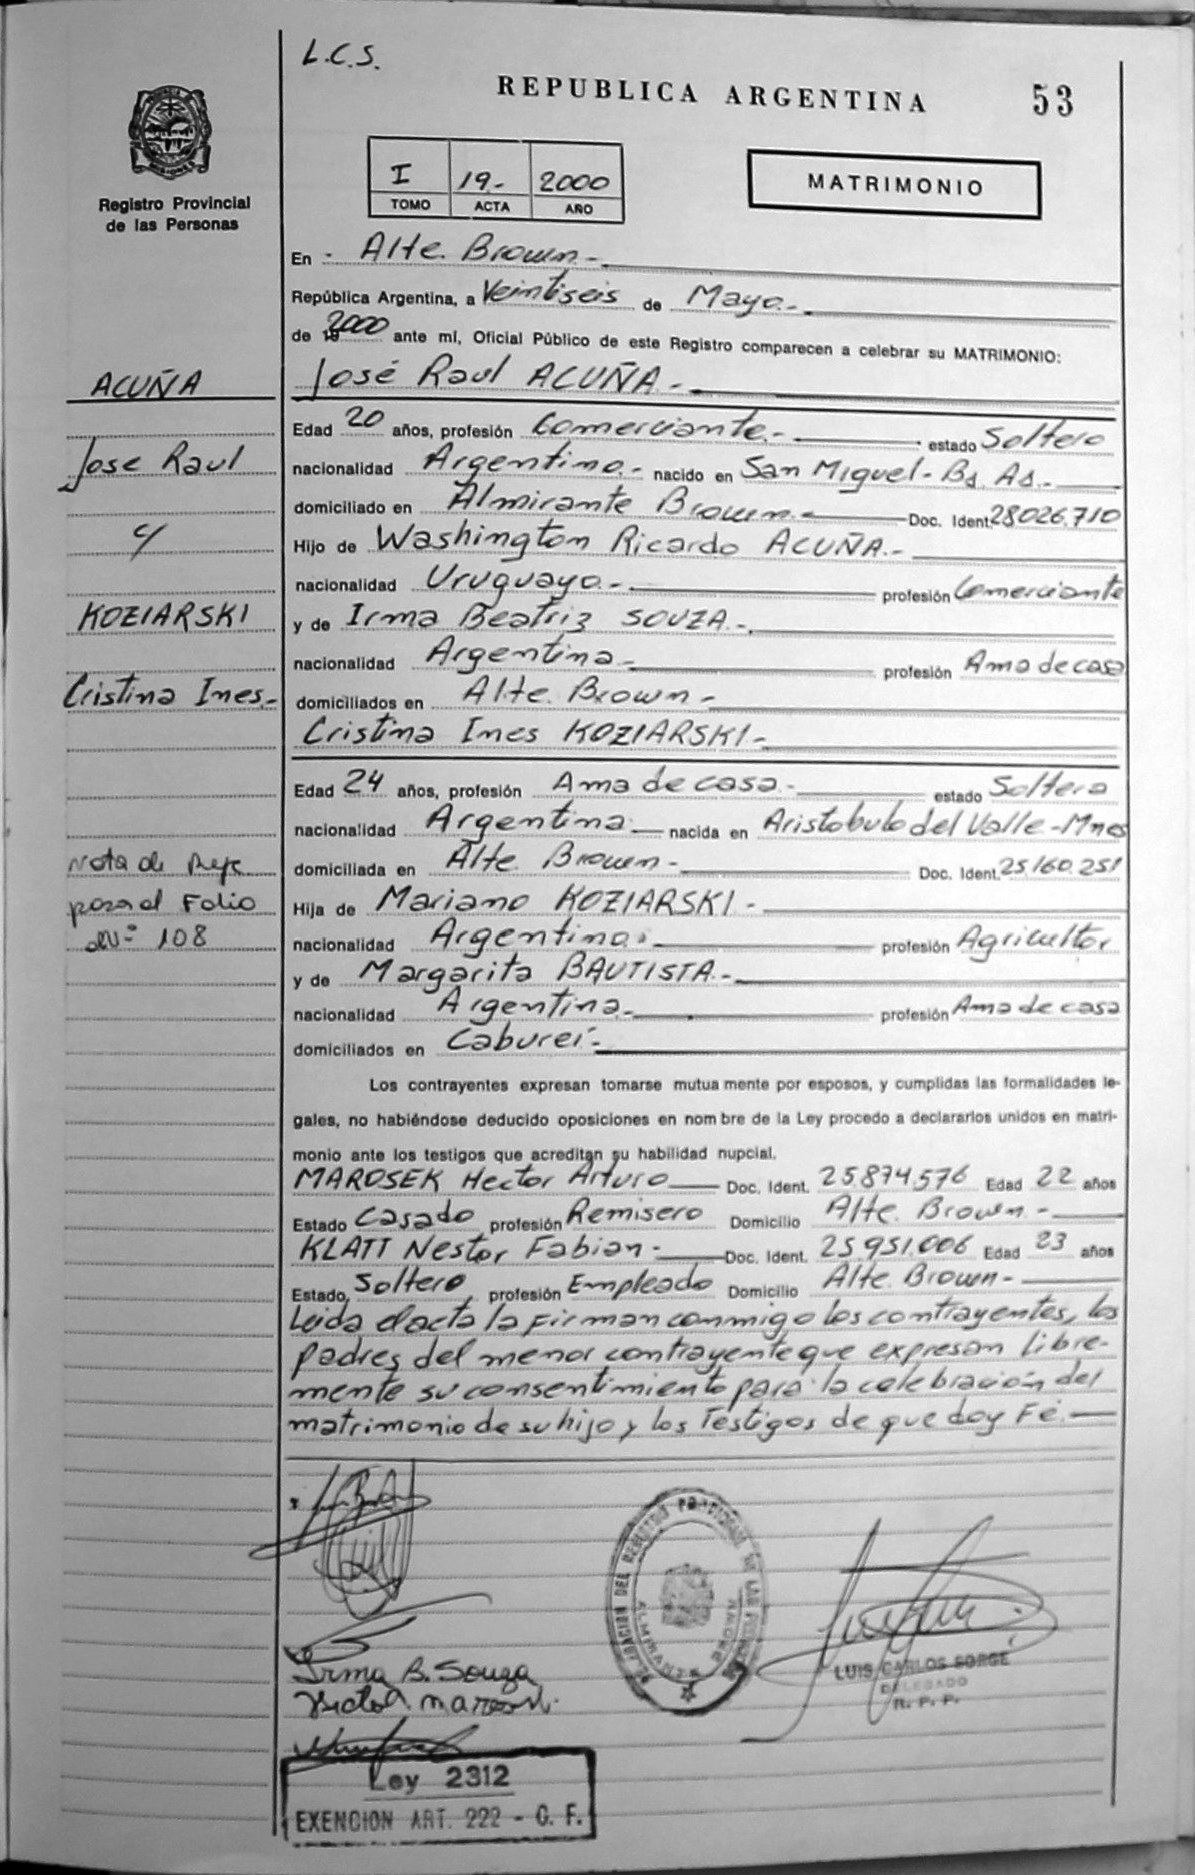 L.C.S.
REPUBLICA ARGENTINA 53
Registro Provincial
de las Personas
I 19.- 2000
TOMO ACTA AÑO
MATRIMONIO
En - Alte. Brown.-
República Argentina, a Veintiseis de Mayo.-
de 2000 ante mí, Oficial Público de este Registro comparecen a celebrar su MATRIMONIO:
José Raul ACUÑA.-
Edad 20 años, profesión Comerciante.- estado Soltero
nacionalidad Argentino.- nacido en San Miguel - Bs. As.-
domiciliado en Almirante Brown.- Doc. Ident. 28026.710
Hijo de Washington Ricardo ACUÑA.-
nacionalidad Uruguayo.- profesión Comerciante
y de Irma Beatriz SOUZA.-
nacionalidad Argentina.- profesión Ama de casa
domiciliados en Alte. Brown -
Cristina Ines KOZIARSKI-
Edad 24 años, profesión Ama de casa.- estado Soltera
nacionalidad Argentina.- nacida en Aristobulo del Valle - Mnes
domiciliada en Alte. Brown - Doc. Ident. 25.160.251
Hija de Mariano KOZIARSKI -
nacionalidad Argentino.- profesión Agricultor
y de Margarita BAUTISTA.-
nacionalidad Argentina.- profesión Ama de casa
domiciliados en Caburei.-
Los contrayentes expresan tomarse mutuamente por esposos, y cumplidas las formalidades le-
gales, no habiéndose deducido oposiciones en nombre de la Ley procedo a declararlos unidos en matri-
monio ante los testigos que acreditan su habilidad nupcial.
MAROSEK Hector Arturo Doc. Ident. 25.874.576 Edad 22 años
Estado Casado profesión Remisero Domicilio Alte. Brown -
KLATT Nestor Fabian - Doc. Ident. 25.951.006 Edad 23 años
Estado Soltero profesión Empleado Domicilio Alte. Brown -
Leida el acta la firman conmigo los contrayentes, los
padres del menor contrayente que expresan libre-
mente su consentimiento para la celebración del
matrimonio de su hijo y los Testigos de que doy Fé.-
ACUÑA
Jose Raul
y
KOZIARSKI
Cristina Ines.-
Nota de
pasa al Folio
Nº 108
Irma B. Souza
DELEGACION DEL REGISTRO PROVINCIAL DE LAS PERSONAS
ALMIRANTE BROWN
LUIS CARLOS SORGE
DELEGADO
R. P. P.
Ley 2312
EXENCION ART. 222 - C. F.